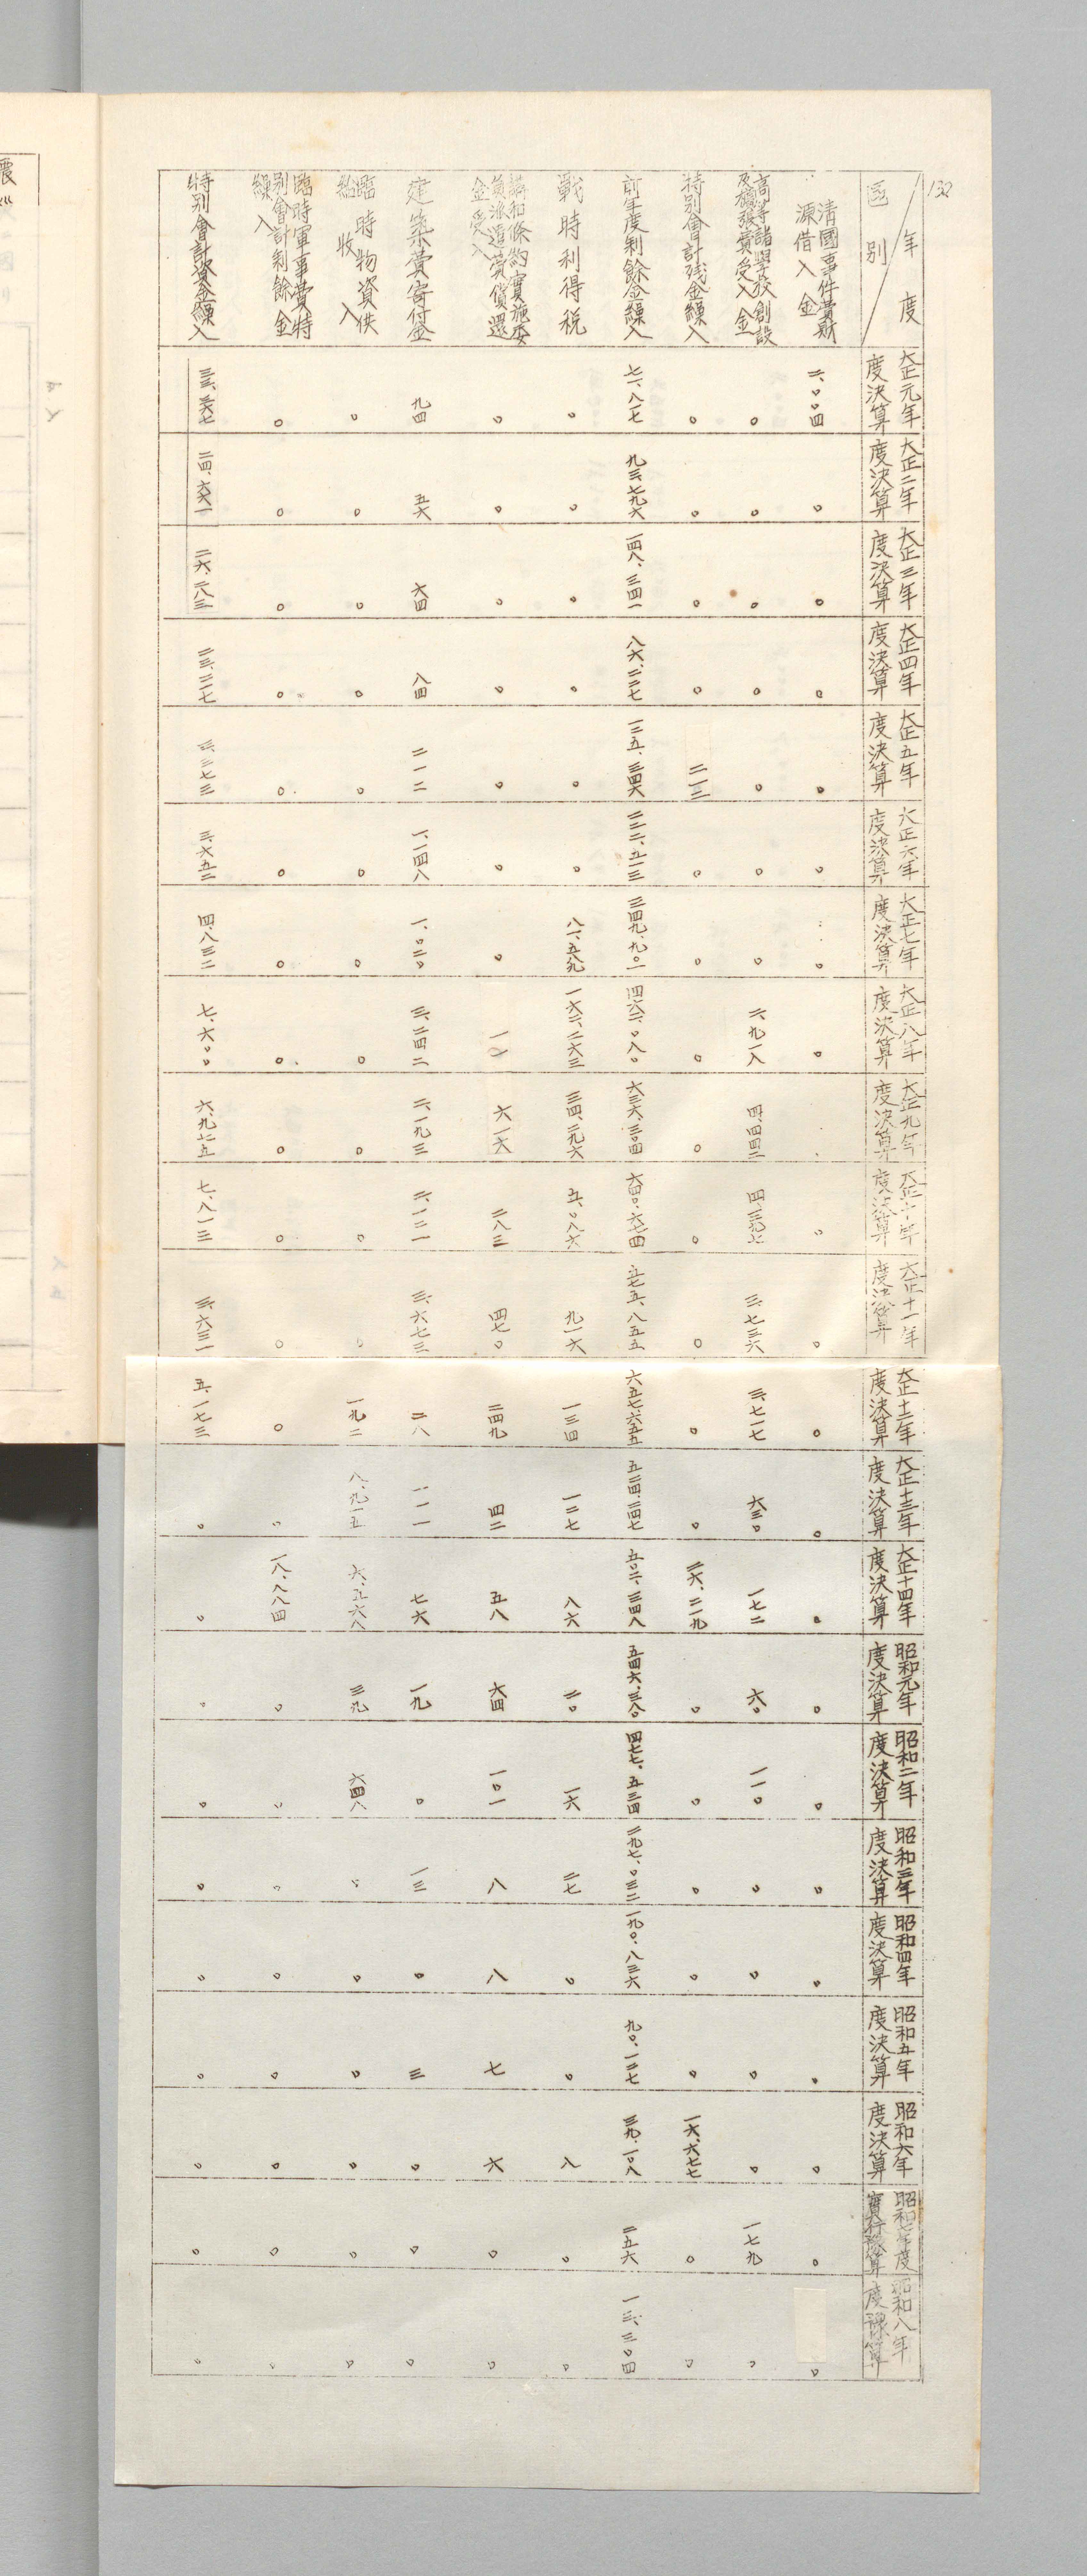 132
年度
區別
大正元年度決算
大正二年度決算
大正三年度決算
大正四年度決算
大正五年度決算
大正六年度決算
大正七年度決算
大正八年度決算
大正九年度決算
大正十年度決算
大正十一年度決算
大正十二年度決算
大正十三年度決算
大正十四年度決算
昭和元年度決算
昭和二年度決算
昭和三年度決算
昭和四年度決算
昭和五年度決算
昭和六年度決算
昭和七年度實行豫算
昭和八年度豫算
清國事件費財源借入金 二、〇〇四 〇 〇 〇 〇 〇 〇 〇 〇 〇 〇 〇 〇 〇 〇 〇 〇 〇 〇 〇 〇
高等諸學校創設及擴張費受入金 〇 〇 〇 〇 〇 〇 〇 二、九一八 四、四四二 四、三九七 三、七三六 三、七一七 六三〇 一七二 六〇 一一〇 〇 〇 〇 〇 一七九 〇
特別會計残金繰入 〇 〇 〇 〇 二一三 〇 〇 〇 〇 〇 〇 〇 〇 二六、二一九 〇 〇 〇 〇 〇 一六、六七七 〇 〇
前年度剰餘金繰入 七一、八一七 九三、七九六 一四八、三四一 八六、二二七 一三五、三四六 二二二、五一三 三四九、九〇一 四六二、〇八〇 六三六、三〇四 六四〇、六七四 五七五、八五五 六五七、六五五 五二四、二四七 五〇二、三四八 五四六、三八〇 四七七、五三四 二九七、〇三二 一九〇、八三六 九〇、一二七 三九、一〇八 二五六 一三、三〇四
戰時利得税 〇 〇 〇 〇 〇 〇 八一、五八九 一六二、二六三 三四、二九六 五、〇八六 九一六 一三四 一二七 八六 二〇 一六 二七 〇 〇 八 〇 〇
講和條約實施委員派遣費償還金受入 〇 〇 〇 〇 〇 〇 〇 一一 六一六 二八三 四七〇 二四九 四二 五八 六四 一〇一 八 八 七 六 〇 〇
建築費寄付金 九四 五六 六四 八四 二一二 一、一四八 一、〇二〇 三、二四二 二、一九三 二、一二一 三、六七三 二八 一一一 七六 一九 〇 一三 〇 三 〇 〇 〇
臨時物資供給收入 〇 〇 〇 〇 〇 〇 〇 〇 〇 〇 〇 一九二 八、九一五 六、五六八 三九 六四八 〇 〇 〇 〇 〇 〇
臨時軍事費特別會計剰餘金繰入 〇 〇 〇 〇 〇 〇 〇 〇 〇 〇 〇 〇 〇 一八、八八四 〇 〇 〇 〇 〇 〇 〇 〇
特別會計資金繰入 三三、三六七 二四、六六一 二六、二八三 二三、二一七 三、三七三 三、六五二 四、八三二 七、六〇〇 六、九七五 七、八一三 三、六三一 五、一七三 〇 〇 〇 〇 〇 〇 〇 〇 〇 〇